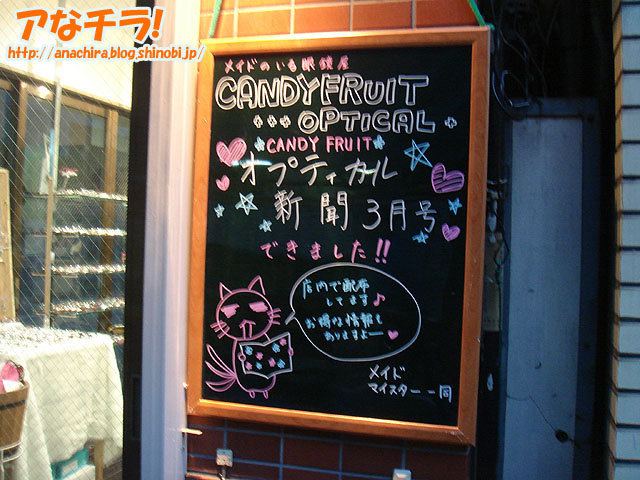 アなチラ!
http://anachira.blog.shinobi.jp/
メイドのいる眼鏡屋
CANDYFRUIT
OPTICAL
CANDY FRUIT
オプティカル
新聞3月号
できました!!
店内で配布
してます♪
お得な情報も
ありますよー
メイド
マイスター一同